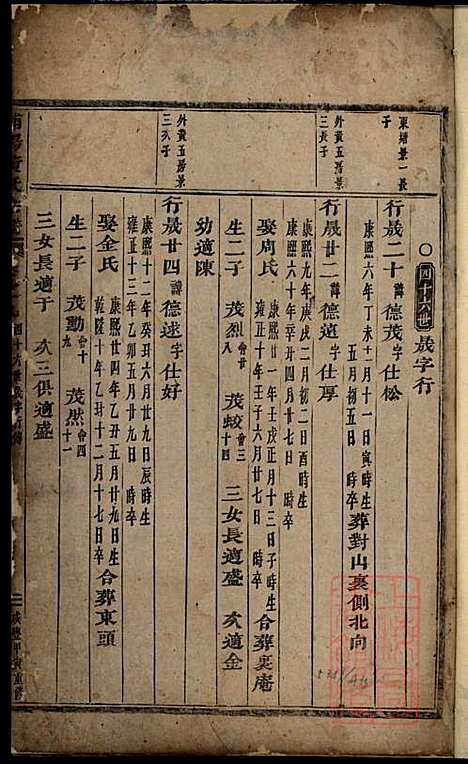 四十六世
晟字行
東塘景一長子
行晟二十諱德茂字仕松
康熙六年丁未十一月十一日寅時生
五月初五日時卒
葬對山裏側北向
外黄五房景三長子
行晟廿二諱德遠字仕厚
康熙九年庚戌二月初二日酉時生
康熙六十年辛丑四月廿七日時卒
娶周氏
康熙廿一年壬戌正月十三日子時生
雍正十年壬子六月廿七日時卒
合葬裏庵
生二子茂烈會廿茂蛟會三十四
三女長適盛次適金
幼適陳
外黄五房景三次子
行晟廿四諱德逑字仕好
康熙十二年癸丑六月廿九日辰時生
雍正十三年乙卯五月廿九日時卒
娶金氏
康熙廿四年乙丑五月廿九日生
乾隆十年乙丑十二月十七日卒
合葬東頭
生二子茂勳會十九茂然會四十一
三女長適于次三俱適盛